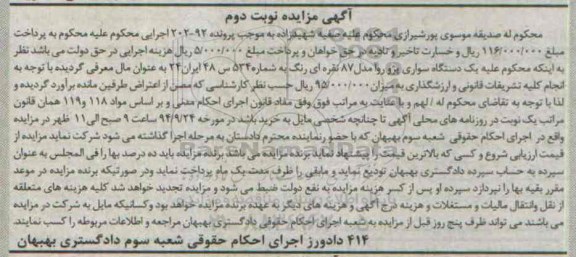 آگهی مزایده نوبت دوم
محکوم له صدیقه موسوی پورشیرازی محکوم علیه صفیه شهیدزاده به موجب پرونده ۹۲-۲۰۲ اجرایی محکوم علیه محکوم به پرداخت
مبلغ ۱۱۶/۰۰۰/۰۰۰ ریال و خسارت تاخیر و تادیه در حق خواهان و پرداخت مبلغ ۵/۰۰۰/۰۰۰ ریال هزینه اجرایی در حق دولت می باشد نظر
به اینکه محکوم علیه یک دستگاه سواری پژو روا مدل ۸۷ نقره ای رنگ به شماره ۵۳۴ س ۴۸ ایران ۲۴ به عنوان مال معرفی گردیده با توجه به
انجام کلیه تشریفات قانونی و ارزشگذاری به میزان ۹۵/۰۰۰/۰۰۰ ریال حسب نظر کارشناسی که مصن از اعتراض طرفین مانده برآورد گردیده و
لذا با توجه به تقاضای محکوم له / لهم و با عنایت به مراتب فوق وفق مفاد قانون اجرای احکام مدنی و بر اساس مواد ۱۱۸ و ۱۱۹ همان قانون
مراتب یک نوبت در روزنامه های محلی آگهی تا چنانچه شخصی مایل به خرید باشد در مورخه ۹۴/۹/۲۴ ساعت ۹ صبح الی ۱۱ ظهر در مزایده
واقع در اجرای احکام حقوقی شعبه سوم بهبهان که با حضور نماینده محترم دادستان به مرحله اجرا گذاشته می شود شرکت نماید مزایده از
قیمت ارزیابی شروع و کسی که بالاترین قیمت را پیشنهاد نماید برنده مزایده می باشد برنده مزایده باید ده درصد بها را فی المجلس به عنوان
سپرده به حساب سپرده دادگستری بهبهان تودیع نماید و مابقی را ظرف مدت یک ماه پرداخت نماید ودر صورتیکه برنده مزایده در موعد
مقرر بقیه بها را نپردازد سپرده او پس از کسر هزینه مزایده به نفع دولت ضبط می شود و مزایده تجدید خواهد شد کلیه هزینه های متعلقه
از نقل وانتقال مالیات و مستغلات و هزینه درج آگهی و هزینه های دیگر به عهده برنده مزایده خواهد بود وکسانیکه مایل به شرکت در مزایده
می باشند می تواند ظرف پنج روز قبل از مزایده به شعبه اجرای احکام حقوقی دادگستری بهبهان مراجعه و اطلاعات مربوطه را کسب نمایند.
۴۱۴ دادورز اجرای احکام حقوقی شعبه سوم دادگستری بهبهان